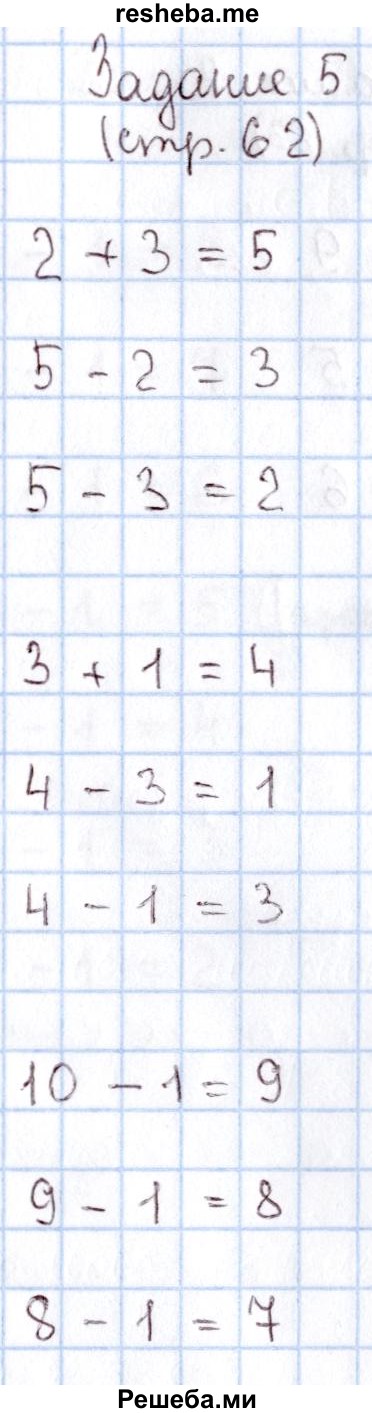 resheba.me
Задание 5
(стр. 62)
2 + 3 = 5
5 - 2 = 3
5 - 3 = 2
3 + 1 = 4
4 - 3 = 1
4 - 1 = 3
10 - 1 = 9
9 - 1 = 8
8 - 1 = 7
Решеба.ми